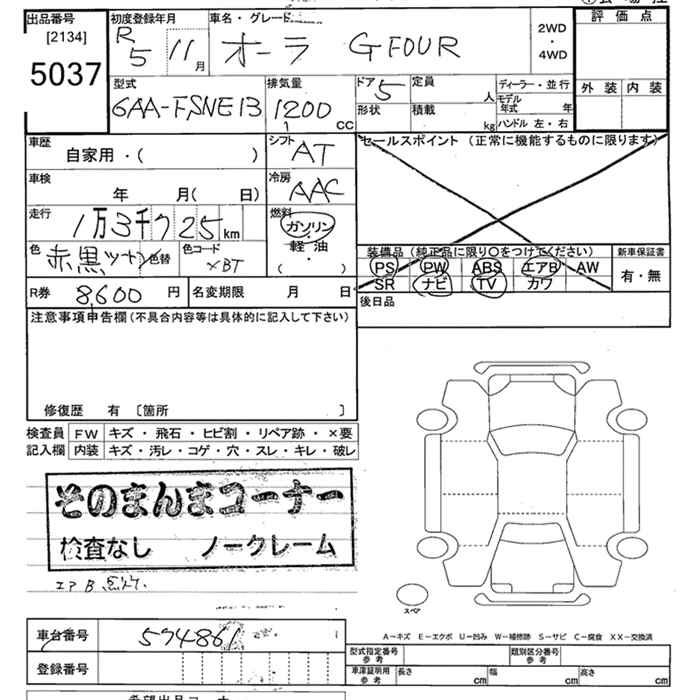 出品番号 初度登録年月 車名・グレード 2WD 評価点
[2134] R 5 11 月 オーラ G FOUR ・ 4WD
5037
型式 排気量 ドア 5 定員 人 ディーラー・並行 外装 内装
6AA-FSNE13 1200 CC 形状 積載 kg モデル年式 年
ハンドル 左・右
車歴 シフト AT セールスポイント (正常に機能するものに限ります)
自家用・( )
車検 冷房 AAC
年 月( 日)
走行 燃料 ガソリン
1万3千725 km ・軽油
色 赤黒ツートン 色替 色コード XBT ・( )
装備品 (純正品に限り〇をつけてください) 新車保証書
PS PW ABS エアB AW 有・無
SR ナビ TV カワ
R券 8,600 円 名変期限 月 日 後日品
注意事項申告欄(不具合内容等は具体的に記入して下さい)
修復歴 有 〔箇所 〕
検査員 FW キズ・飛石・ヒビ割・リペア跡・×要
記入欄 内装 キズ・汚レ・コゲ・穴・スレ・キレ・破レ
そのまんまコーナー
検査なし ノークレーム
エアB
スペア
A-キズ E-エクボ U-凹み W-補修跡 S-サビ C-腐食 XX-交換済
車台番号 574861
型式指定番号 参考 類別区分番号 参考
登録番号
車庫証明用 参考 長さ cm 幅 cm 高さ cm